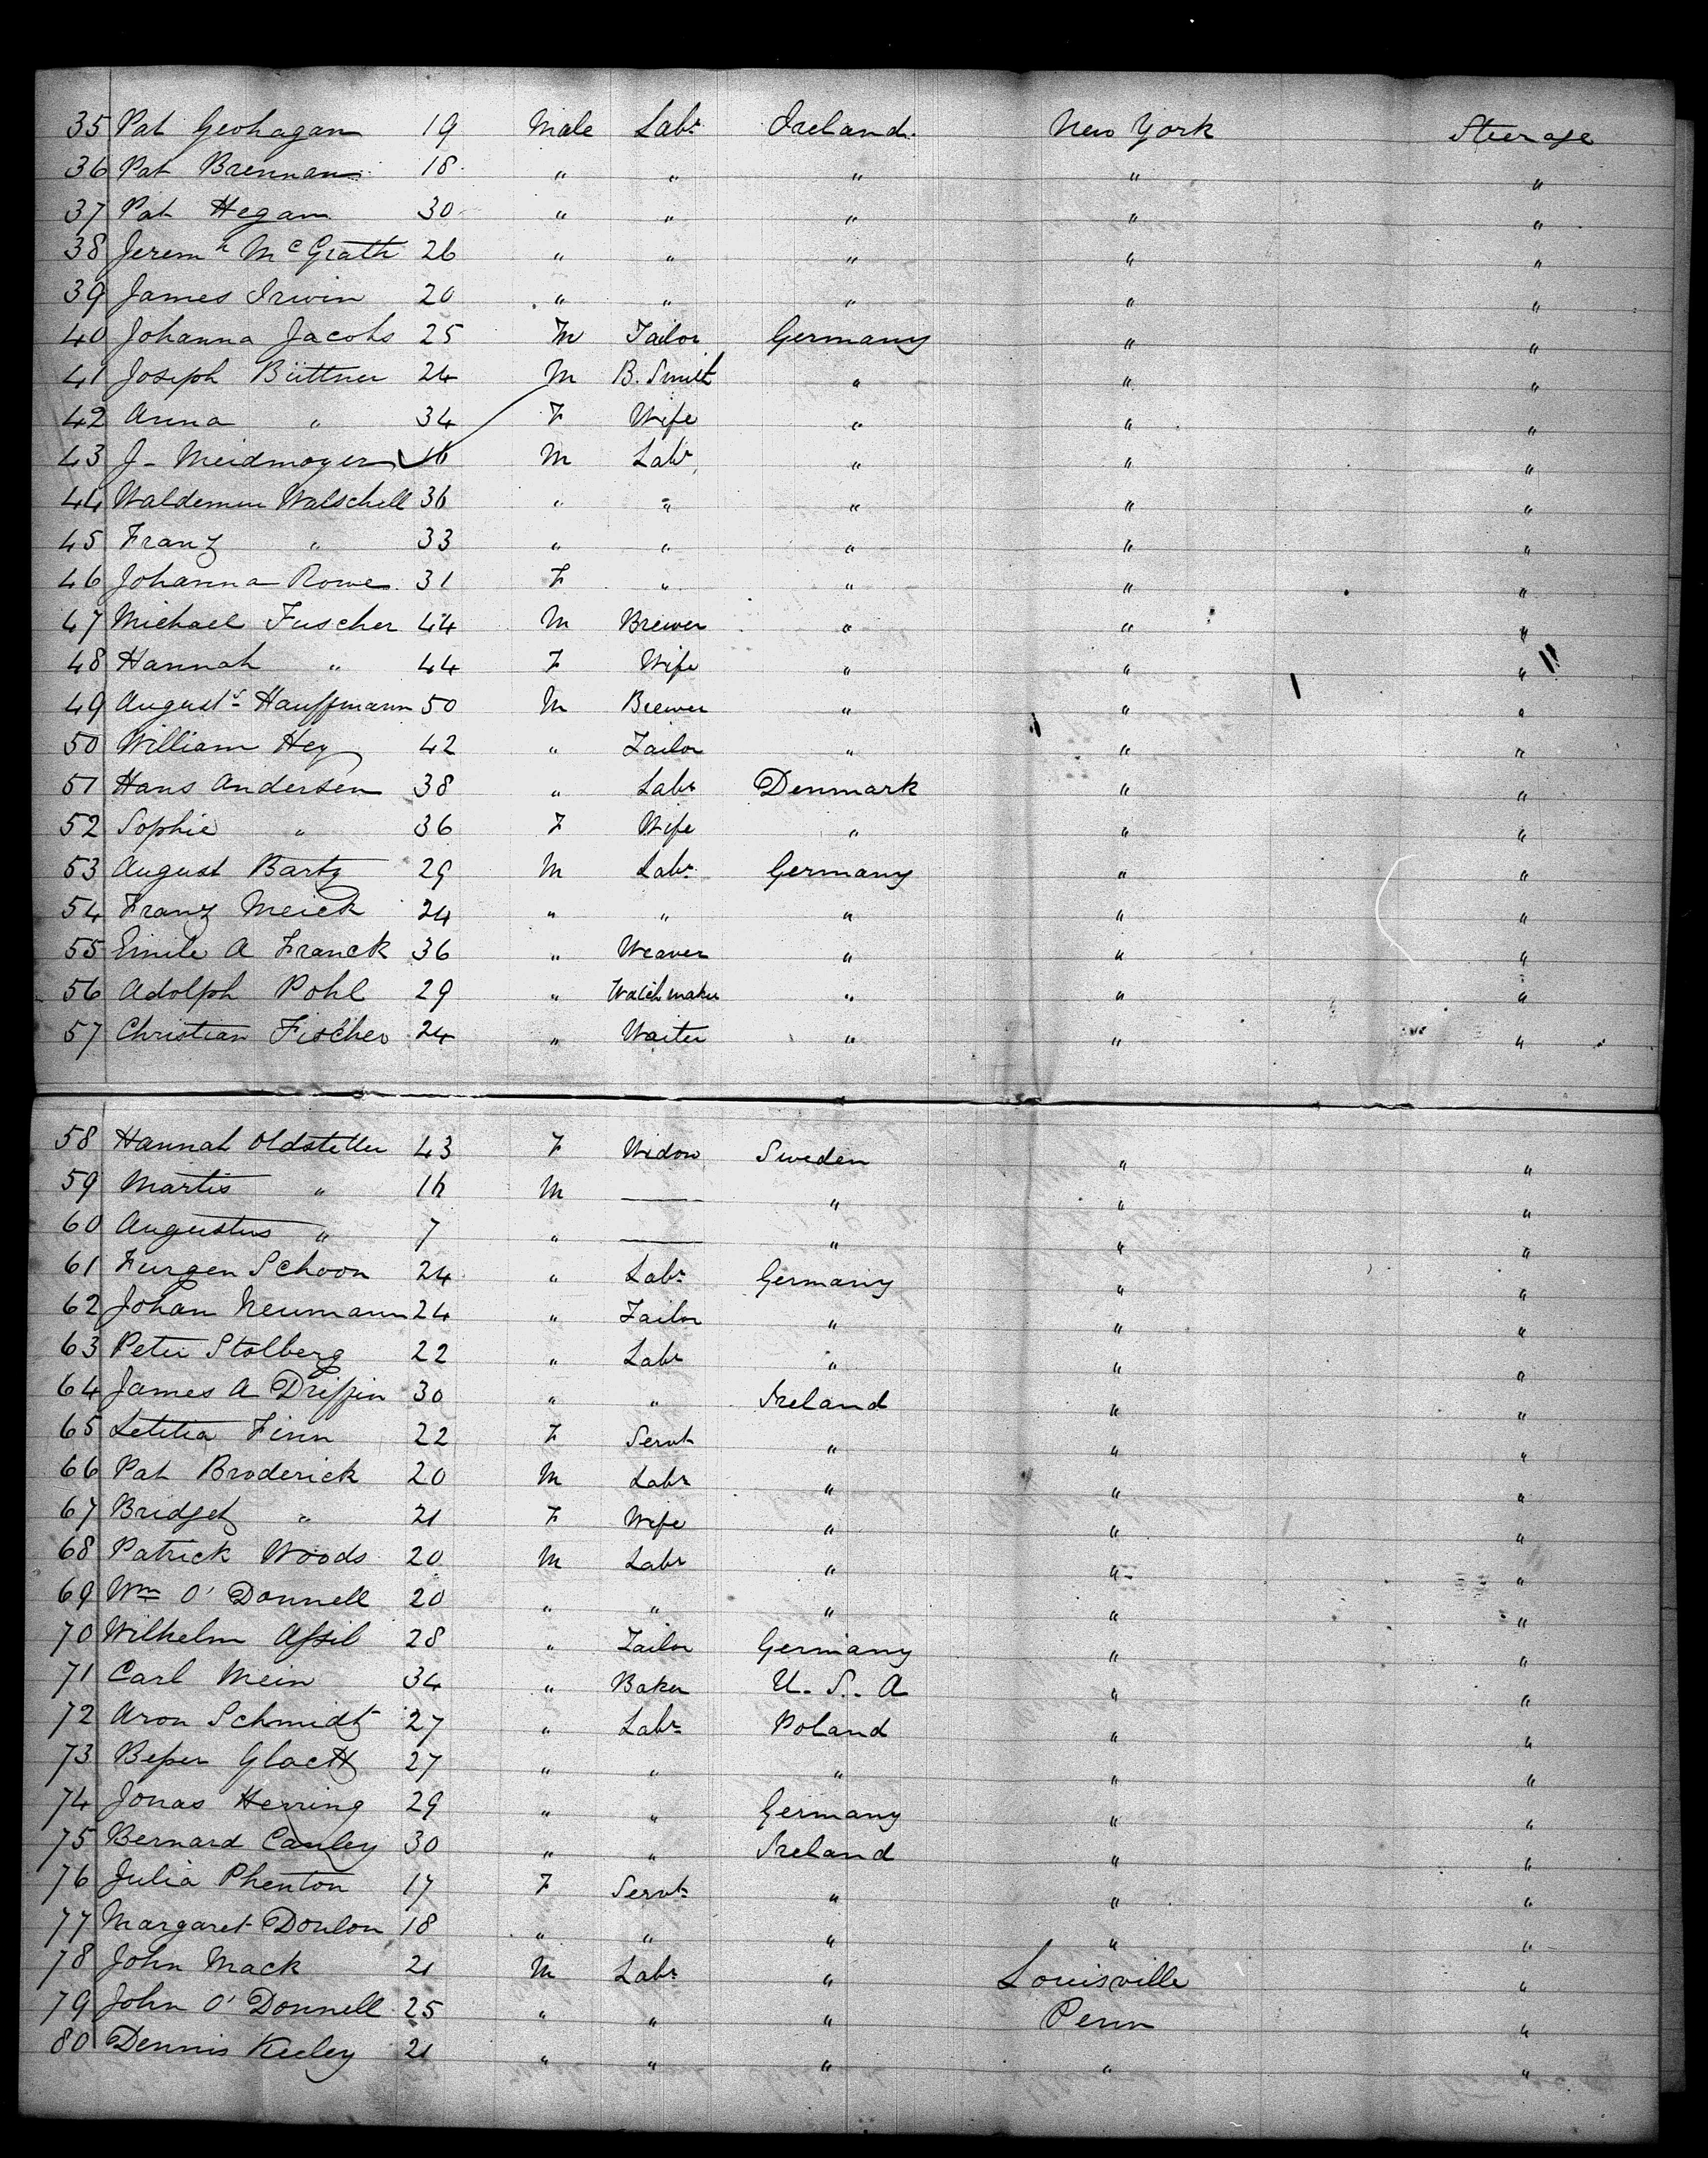 35 Pat Geohagan 19 Male Labr Ireland. New York Steerage
36 Pat Brennan 18 " " " " "
37 Pat Hegan 30 " " " " "
38 Jeremh McGrath 26 " " " " "
39 James Irwin 20 " " " " "
40 Johanna Jacobs 25 M Tailor Germany " "
41 Joseph Büttner 24 M B. Smith " " "
42 Anna " 34 F Wife " " "
43 J- Meidmoyer M Labr " " "
44 Waldemur Walschell 36 " " " " "
45 Franz " 33 " " " " "
46 Johanna Rowe 31 F " " " "
47 Michael Fuscher 44 M Brewer " " "
48 Hannah " 44 F Wife " " "
49 Augusts Hauffmann 50 M Brewer " " "
50 William Hey 42 " Tailor " " "
51 Hans Andersen 38 " Labr Denmark " "
52 Sophie " 36 F Wife " " "
53 August Bartz 29 M Labr Germany " "
54 Franz Meick 24 " " " " "
55 Emile A Franck 36 " Weaver " " "
56 Adolph Pohl 29 " Watchmaker " " "
57 Christian Fischer 24 " Waiter " " "
58 Hannah Oldsteller 43 F Widow Sweden " "
59 Martis " 16 M — " " "
60 Augustus " 7 " — " " "
61 Furgen Schoon 24 " Labr Germany " "
62 Johan Neumann 24 " Tailor " " "
63 Peter Stolberg 22 " Labr " " "
64 James A Driffin 30 " " Ireland " "
65 Letitia Finn 22 F Servt " " "
66 Pat Broderick 20 M Labr " " "
67 Bridget " 21 F Wife " " "
68 Patrick Woods 20 M Labr " " "
69 Wm O'Donnell 20 " " " " "
70 Wilhelm Assil 28 " Tailor Germany " "
71 Carl Mein 34 " Baker U. S. A " "
72 Aron Schmidt 27 " Labr Poland " "
73 Besser 27 " " " " "
74 Jonas Herring 29 " " Germany " "
75 Bernard Cauley 30 " " Ireland " "
76 Julia Phenton 17 F Servt " " "
77 Margaret Donlon 18 " " " " "
78 John Mack 21 M Labr " Louisville "
79 John O'Donnell 25 " " " Penn "
80 Dennis Keeley 21 " " " " "